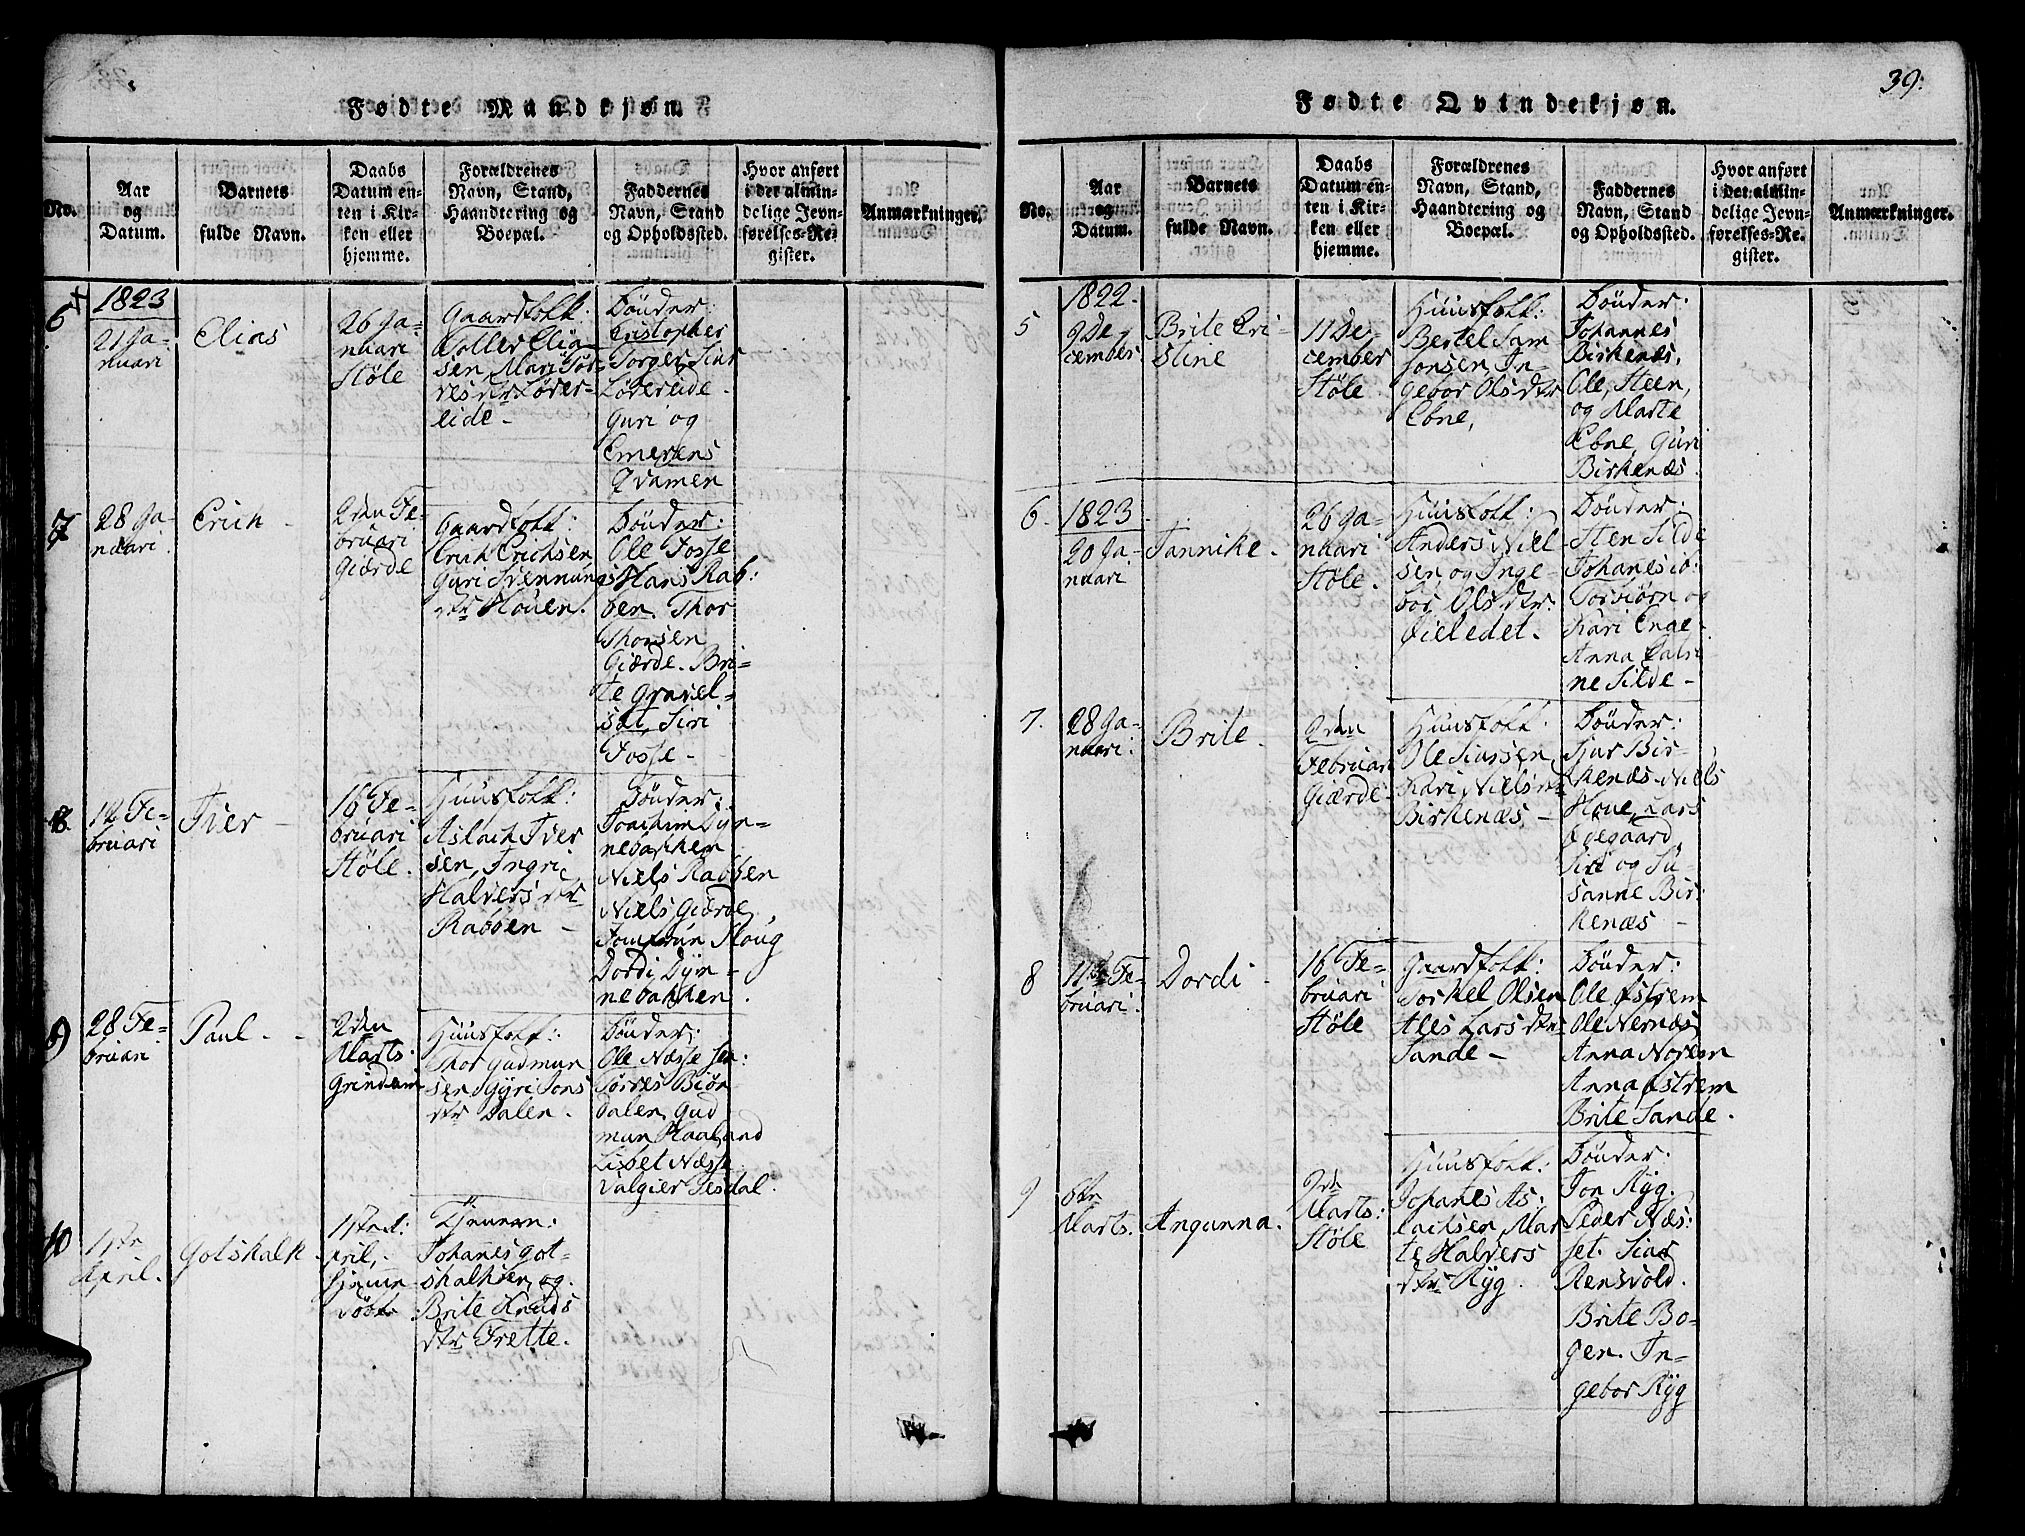 Fødte Mandkjøn.
No.
Aar
og
Datum.
Barnets
fulde Navn.
Daabs
Datum en-
ten i Kir-
ken eller
hjemme.
Forældrenes
Navn, Stand,
Haandtering og
Boepæl.
Faddernes
Navn, Stand
og Opholdssted.
Hvor anført
i det almin-
delige Jevn-
førelses-Re-
gister.
Anmærkninger.
6
1823
21 Ja-
nuari
Elias
26 Ja-
nuari
Støle
Gaardfolk:
Toller Elia-
sen, Mari Tor-
res dtr Løver-
eide -
Bönder:
Cristopher
Torger, Siur
Løvereide.
Guri og
Emerens
Qvamen
7
28 Ja-
nuari
Erich -
2den Fe-
bruari
Giærde
Gaardfolk:
Erich Erichsen
Guri Svennungs
dtr Houen.
Bönder:
Ole Fosse
Hans Rab:
ben. Thor
Thorsen
Giærde. Bri-
te Gravel-
sæt, Siri
Fosse -
8
12 Fe-
bruari
Iver -
16 Fe-
bruari
Støle.
Huusfolk:
Aslach Iver
sen, Ingri
Halvers dtr
Rabben -
Bönder:
Joachim Dyn-
nebakken
Niels Rabben
Niels Giærde,
Jomfrun Houg
Dordi Dyn-
nebakken.
9
28 Fe-
bruari
Paul - -
2den
Marts:
Grindem
Huusfolk:
Thor Gudmun
sen, Gyri Jons
dtr Dalen -
Bönder:
Ole Næsse jen:
Torres Biør-
dalen, Gud
mun Haaland
Lisbet Næsse
Valgier Tesdal.
10
1ste
April.
Gotskalk -
1ste A:
pril,
hjemme
døbt
Tjenere:
Johanes Got-
skalksen, og
Brite Knuds
dtr Frette.
39:
Fødte Qvindekjøn.
No.
Aar
og
Datum.
Barnets
fulde Navn.
Daabs
Datum en-
ten i Kir-
ken eller
hjemme.
Forældrenes
Navn, Stand,
Haandtering og
Boepæl.
Faddernes
Navn, Stand
og Opholdssted.
Hvor anført
i det almin-
delige Jevn-
førelses-Re-
gister.
Anmærkninger.
5
1822-
9 De-
cember
Brite Cri-
stine
11 De-
cember
Støle.
Huusfolk:
Bertel Sam
sonsen, In-
gebor Ols dtr
Ebne,
Bönder:
Johannes
Birkenæs,
Ole, Steen,
og Marte
Ebne, Guri
Birkenæs.
6.
1823.
20 Ja-
nuari
Jannike -
26 Ja-
nuari
Støle.
Huusfolk:
Anders Niel-
sen, og Inge-
bor Ols dtr:
Øieledet.
Bönder:
Sten Silde
Johanes ib:
Torbiørn og
Kari Enge-
Anna Catri
ne Silde -
7.
28 Ja-
nuari.
Brite -
2den
Februari
Giærde -
Huusfolk:
Ole Siursen,
Kari Niels dtr
Birkenæs -
Bönder:
Sjur Bir-
kenæs. Niels
Houe, Lars
Ødegaard,
Siri og Su-
sanne Bir:
kenæs -
8
11te Fe-
bruari.
Dordi -
16 Fe-
bruari
Støle
Gaardfolk:
Torkel Olsen
Ales Lars dtr
Sande -
Bönder:
Ole Østrem
Ole Nernæs
Anna Norem
Anna Østrem
Brite Sande.
9
6te
Marts.
Anganna.
2den
Marts:
Støle
Huusfolk:
Johanes As:
lachsen, Mar
te Halvers
dtr Ryg.
Bönder:
Jon Ryg.
Peder Næs:
set. Siur
Rensvold.
Brite Bo-
gen. In-
gebor Ryg